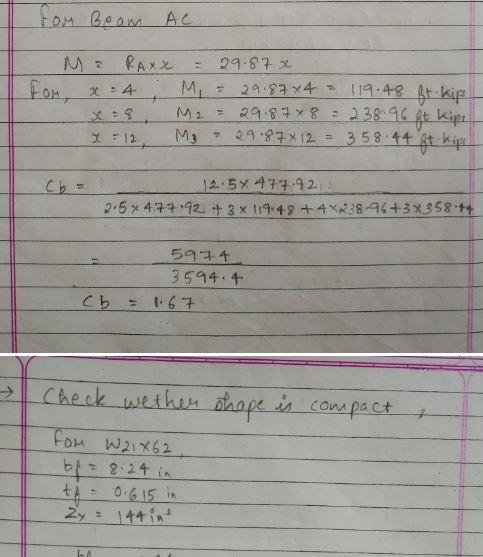 For Beam AC
M = RA×x = 29.87 x
For, x = 4, M1 = 29.87×4 = 119.48 ft.kips
x = 8, M2 = 29.87×8 = 238.96 ft kips
x = 12, M3 = 29.87×12 = 358.44 ft.kips
Cb = 12.5×477.92
2.5×477.92 + 3×119.48 + 4×238.96 + 3×358.44
= 5974
3594.4
Cb = 1.67
→ Check wether shape is compact,
For W21×62,
bf = 8.24 in
tf = 0.615 in
Zx = 144 in³